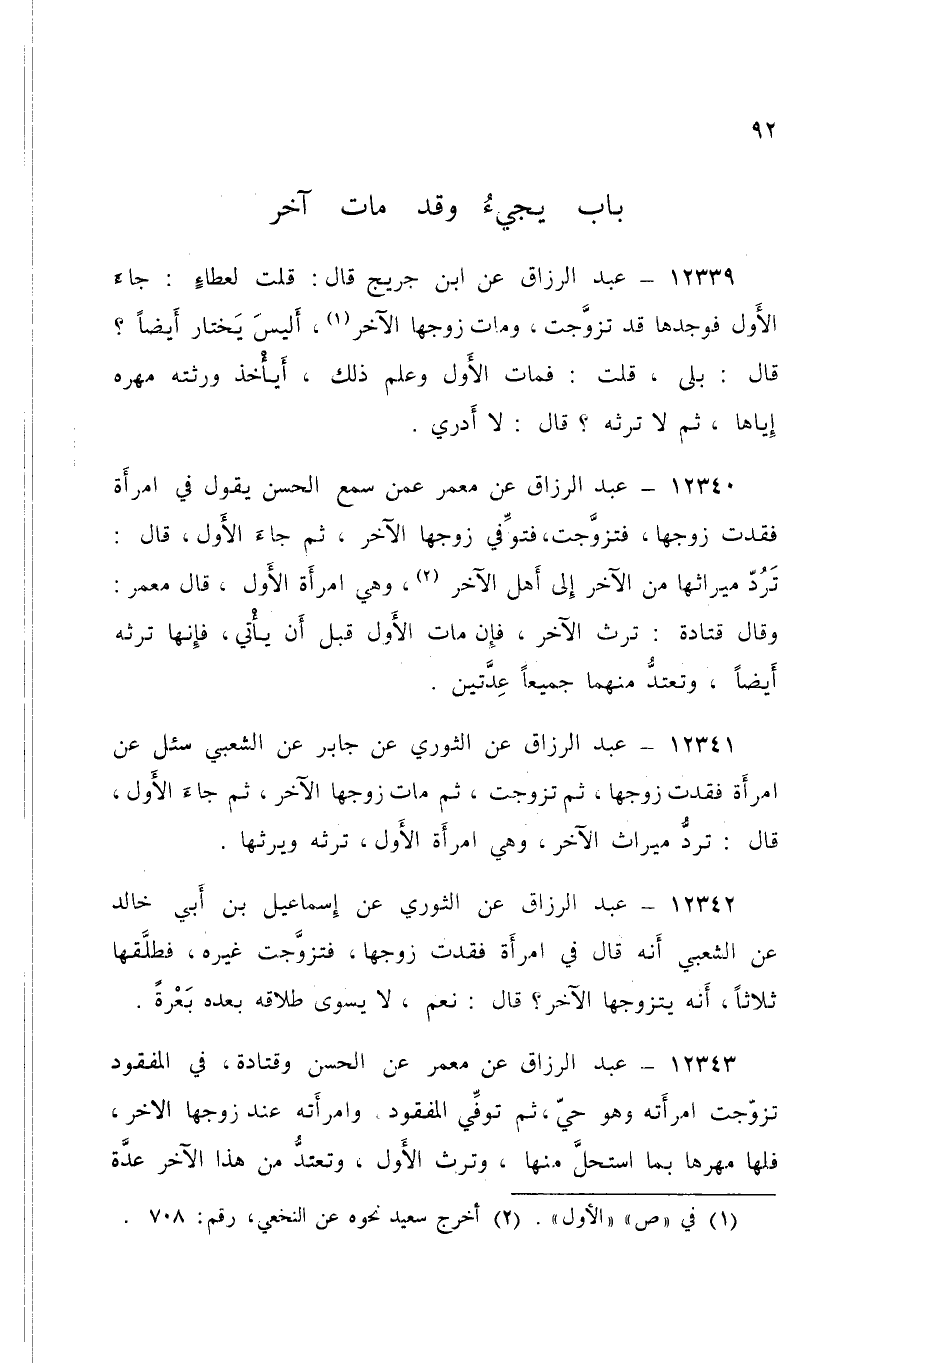 ٩٢
باب يجيءُ وقد مات آخر
١٢٣٣٩ ــ عبد الرزاق عن ابن جريج قال : قلت لعطاءٍ : جاءَ
الأَول فوجدها قد تزوَّجت ، ومات زوجها الآخر(١) ، أَليسَ يَختار أَيضاً ؟
قال : بلى ، قلت : فمات الأَول وعلم ذلك ، أَيأْخذ ورثته مهره
إِياها ، ثم لا ترثه ؟ قال : لا أَدري .
١٢٣٤٠ ــ عبد الرزاق عن معمر عمن سمع الحسن يقول في امرأَة
فقدت زوجها ، فتزوَّجت ، فتوفِّي زوجها الآخر ، ثم جاءَ الأَول ، قال :
تَرُدّ ميراثها من الآخر إِلى أَهل الآخر (٢) ، وهي امرأَة الأَول ، قال معمر :
وقال قتادة : ترث الآخر ، فإن مات الأَول قبل أَن يأْتي ، فإِنها ترثه
أَيضاً ، وتعتدُّ منهما جميعاً عِدَّتين .
١٢٣٤١ ــ عبد الرزاق عن الثوري عن جابر عن الشعبي سئل عن
امرأَة فقدت زوجها ، ثم تزوجت ، ثم مات زوجها الآخر ، ثم جاءَ الأَول ،
قال : تردُّ ميراث الآخر ، وهي امرأَة الأَول ، ترثه ويرثها .
١٢٣٤٢ ــ عبد الرزاق عن الثوري عن إِسماعيل بن أَبي خالد
عن الشعبي أَنه قال في امرأَة فقدت زوجها ، فتزوَّجت غيره ، فطلَّقها
ثلاثاً ، أَنه يتزوجها الآخر ؟ قال : نعم ، لا يسوى طلاقه بعده بَعْرةً .
١٢٣٤٣ ــ عبد الرزاق عن معمر عن الحسن وقتادة ، في المفقود
تزوّجت امرأَته وهو حيّ ، ثم توفِّي المفقود وامرأَته عند زوجها الاخر ،
فلها مهرها بما استحلَّ منها ، وترث الأَول ، وتعتدُّ من هذا الآخر عدَّة
(١) في «ص» «الأول» . (٢) أخرج سعيد نحوه عن النخعي، رقم: ٧٠٨ .